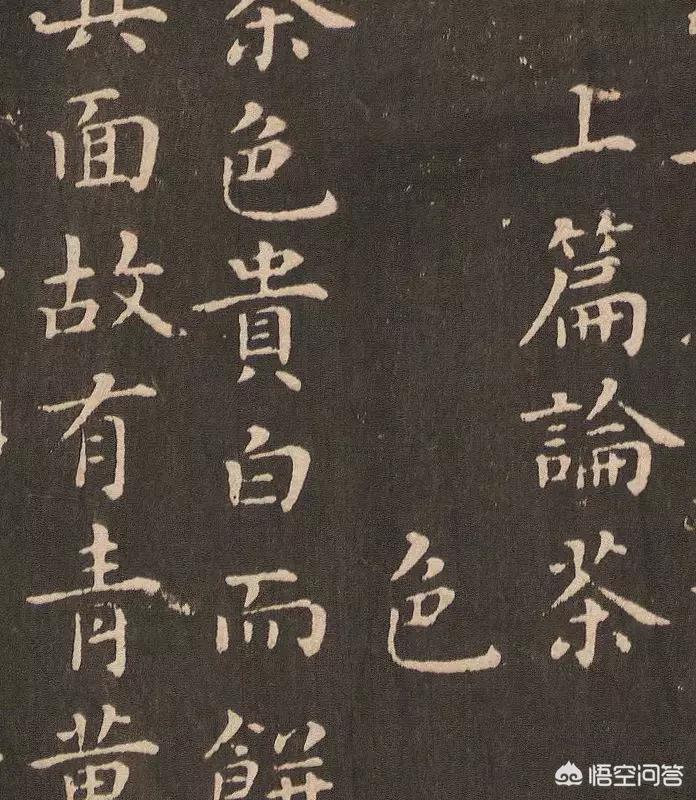 上篇論茶
色
茶色貴白而餅
其面故有青黃
悟空问答